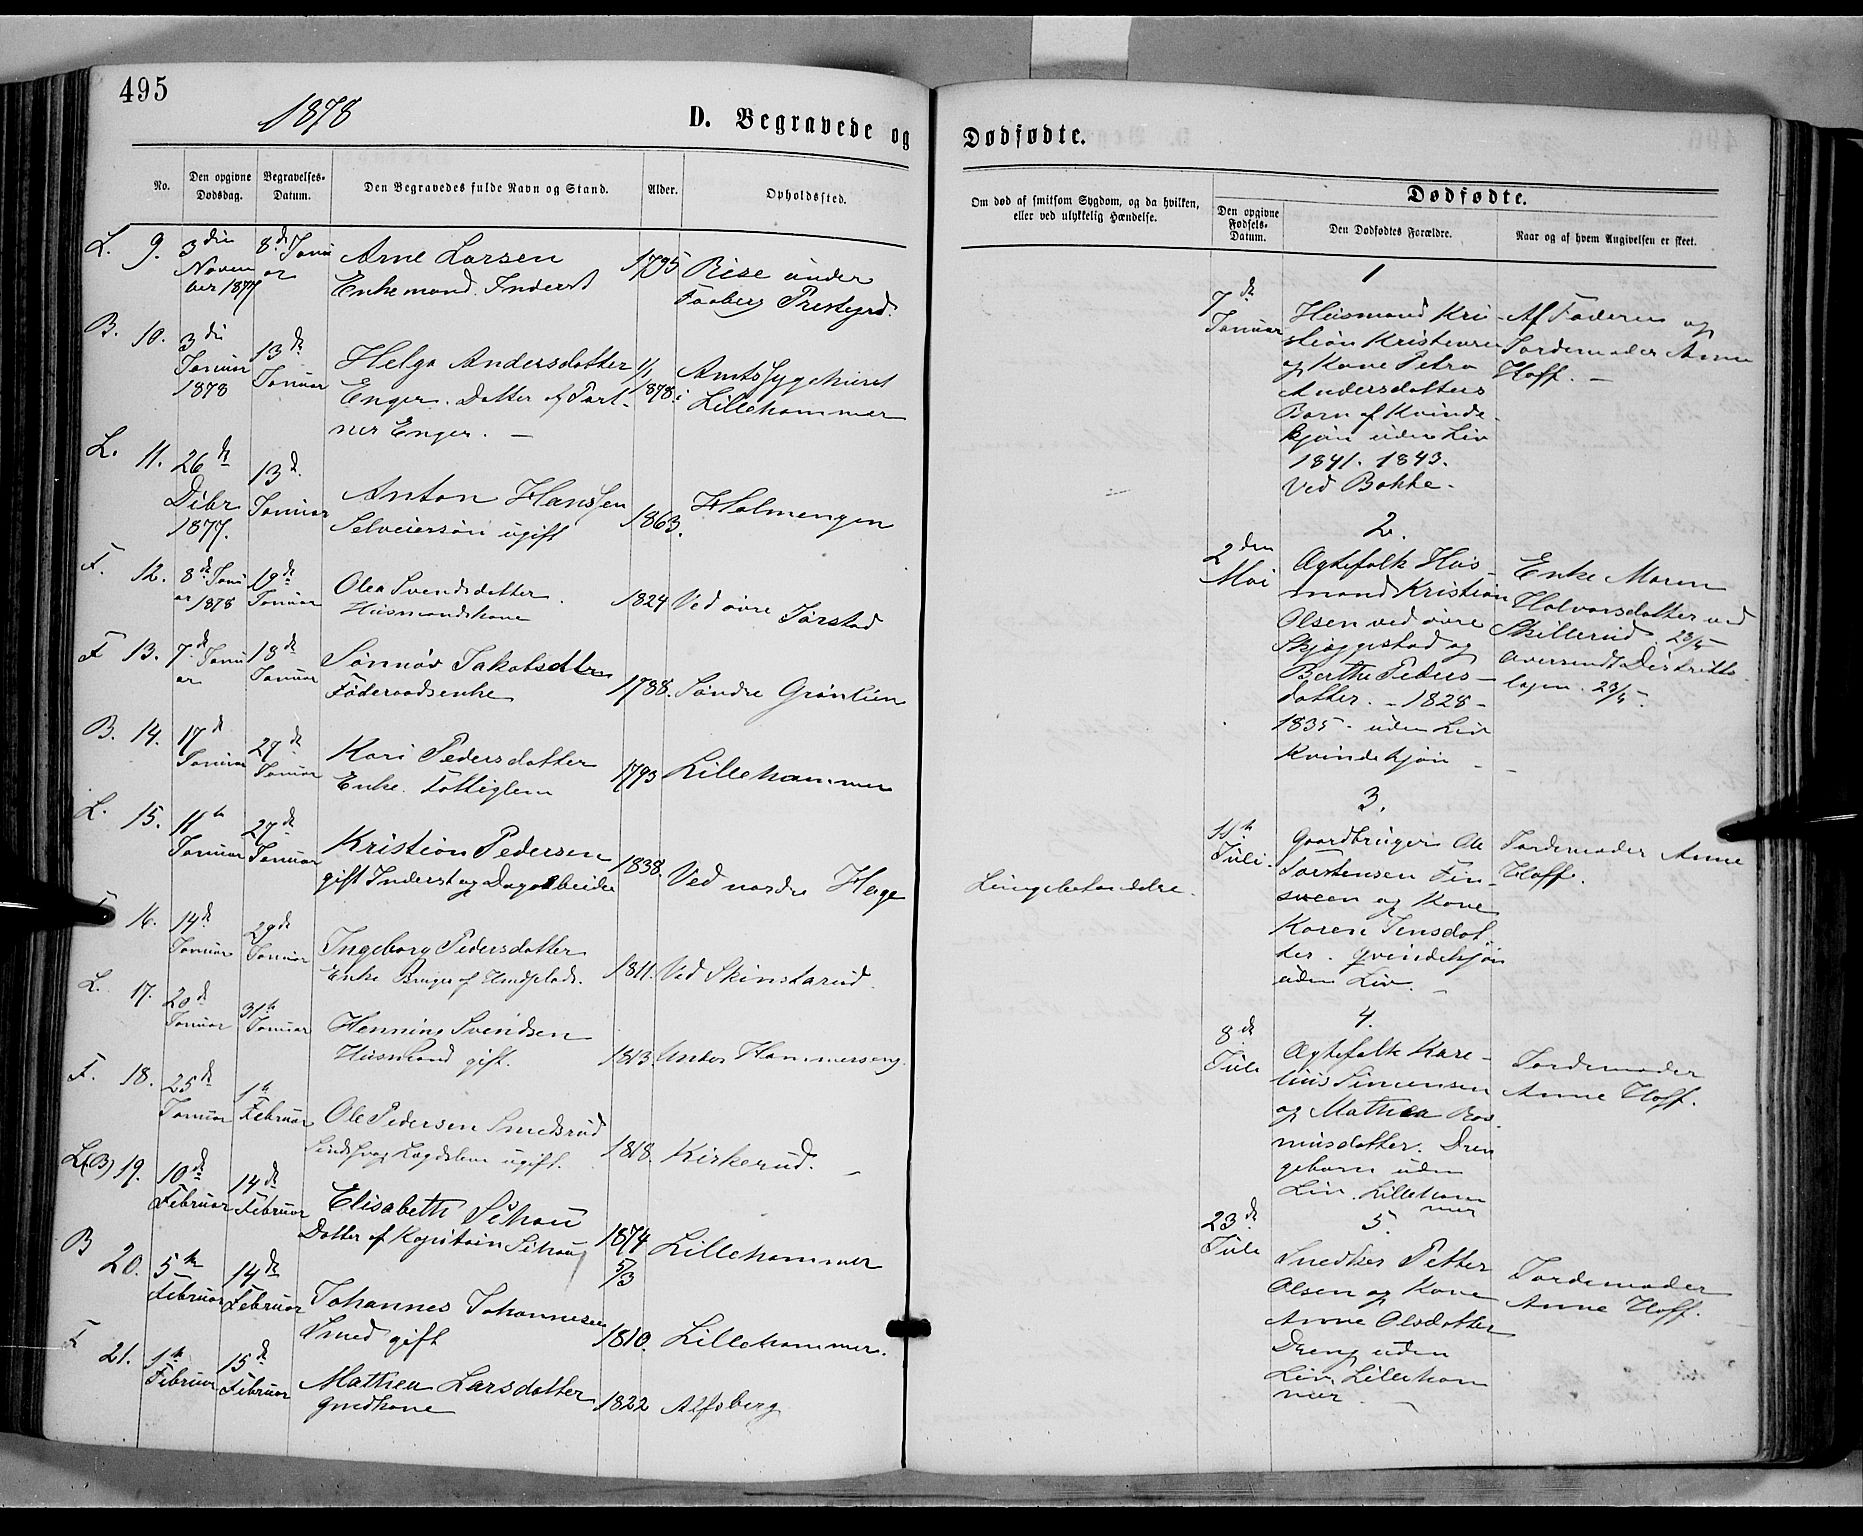 495
1878
D. Begravede og
No.
Den opgivne
Dødsdag.
Begravelses-
Datum.
Den Begravedes fulde Navn og Stand.
Alder.
Opholdssted.
L. 9. 3die
Novem
ber 1877
8de Janu
ar
Arne Larsen
Enkemand. Inderst
1795
Rise under
Faaberg Prestegrd.
B. 10. 3die
Januar
1878
13de
Januar
Helga Andersdatter
Enger. Datter af Part-
ner Enger. —
1/1
1878.
Amtssygehuset
i Lillehammer
L. 11. 26de
Dcbr
1877.
13d.
Januar
Anton Hanssen
Selveiersøn ugift
1863.
Holmengen
F. 12. 8de Janu
ar 1878
19de
Januar
Olea Svendsdatter.
Husmandskone
1824
Ved øvre Jørstad
F 13. 7de Janu
ar
18de
Januar
Sønnøv Jakobsdtr
Føderaadsenke
1788.
Søndre Grønlien
B. 14. 17de
Januar
27de
Januar
Kari Pedersdatter
Enke. Fattiglem
1793
Lillehammer
L. 15. 11te
Januar
27de
Januar
Kristian Pedersen
gift Inderst og Dagarbeider
1838.
Ved nordre Hage
F 16. 14de
Januar
29de
Januar
Ingeborg Pedersdatter
Enke Bruger af Husplads.
1811.
Ved Skinstarud.
L. 17. 20de
Januar
31te
Januar
Henning Svendsen
Husmand gift.
1813.
Under Hammerseng.
F. 18. 25de
Januar
1te
Februar
Ole Pedersen Smedsrud
Sindssvag Lægdslem ugift.
1818.
Kirkerud. —
L(B) 19. 10de
Februar
14de
Februar
Elisabeth Schou
Datter af Kapitain Schou
1874
5/3
Lillehammer
B 20. 5te
Februar
14de
Februar
Johannes Johannesen
Smed gift
1810.
Lillehammer.
F 21. 1te
Februar
15de
Februar
Mathea Larsdatter
Gmdkone
1822
Alfsberg
Dødfødte.
Om død af smitsom Sygdom, og da hvilken,
eller ved ulykkelig Hændelse.
Dødfødte.
Den opgivne
Fødsels-
Datum.
Den Dødfødtes Forældre.
Naar og af hvem Angivelsen er skeet.
Lungebetændelse.
7de
Januar
1
Husmand Kri-
stian Kristensen
og Kone Petra
Andersdatters
Barn af Kvinde-
kjøn uden Liv
1841. 1843.
Ved Bakke.
Af Faderen og
Jordemoder Anne
Hoff. —
2den
Mai
2.
Ægtefolk Hus-
mand Kristian
Olsen ved øvre
Skjæggestad og
Berthe Peders-
datter. - 1828 -
1835 - uden Liv
Kvindekjøn -
Enke Maren
Halvorsdatter ved
Skillerud. 23/5
oversendt Distrikts-
lægen. 23/5.
11te
Juli.
3.
Gaardbruger Ole
Torstensen Fin-
sveen og Kone
Karen Jensdat
ter. Qvindekjøn
uden Liv. —
Jordemoder Anne
Hoff.
8de
Juli
4.
Ægtefolk Kare-
lius Simensen
og Mathea Ras
musdatter. Dren
gebarn uden
Liv. Lilleham
mer
Jordemoder
Anne Hoff.
23de
Juli
5.
Smedker Petter
Olsen og Kone
Anne Olsdatter
Dreng uden
Liv. Lilleham
mer. —
Jordemoder
Anne Hoff.